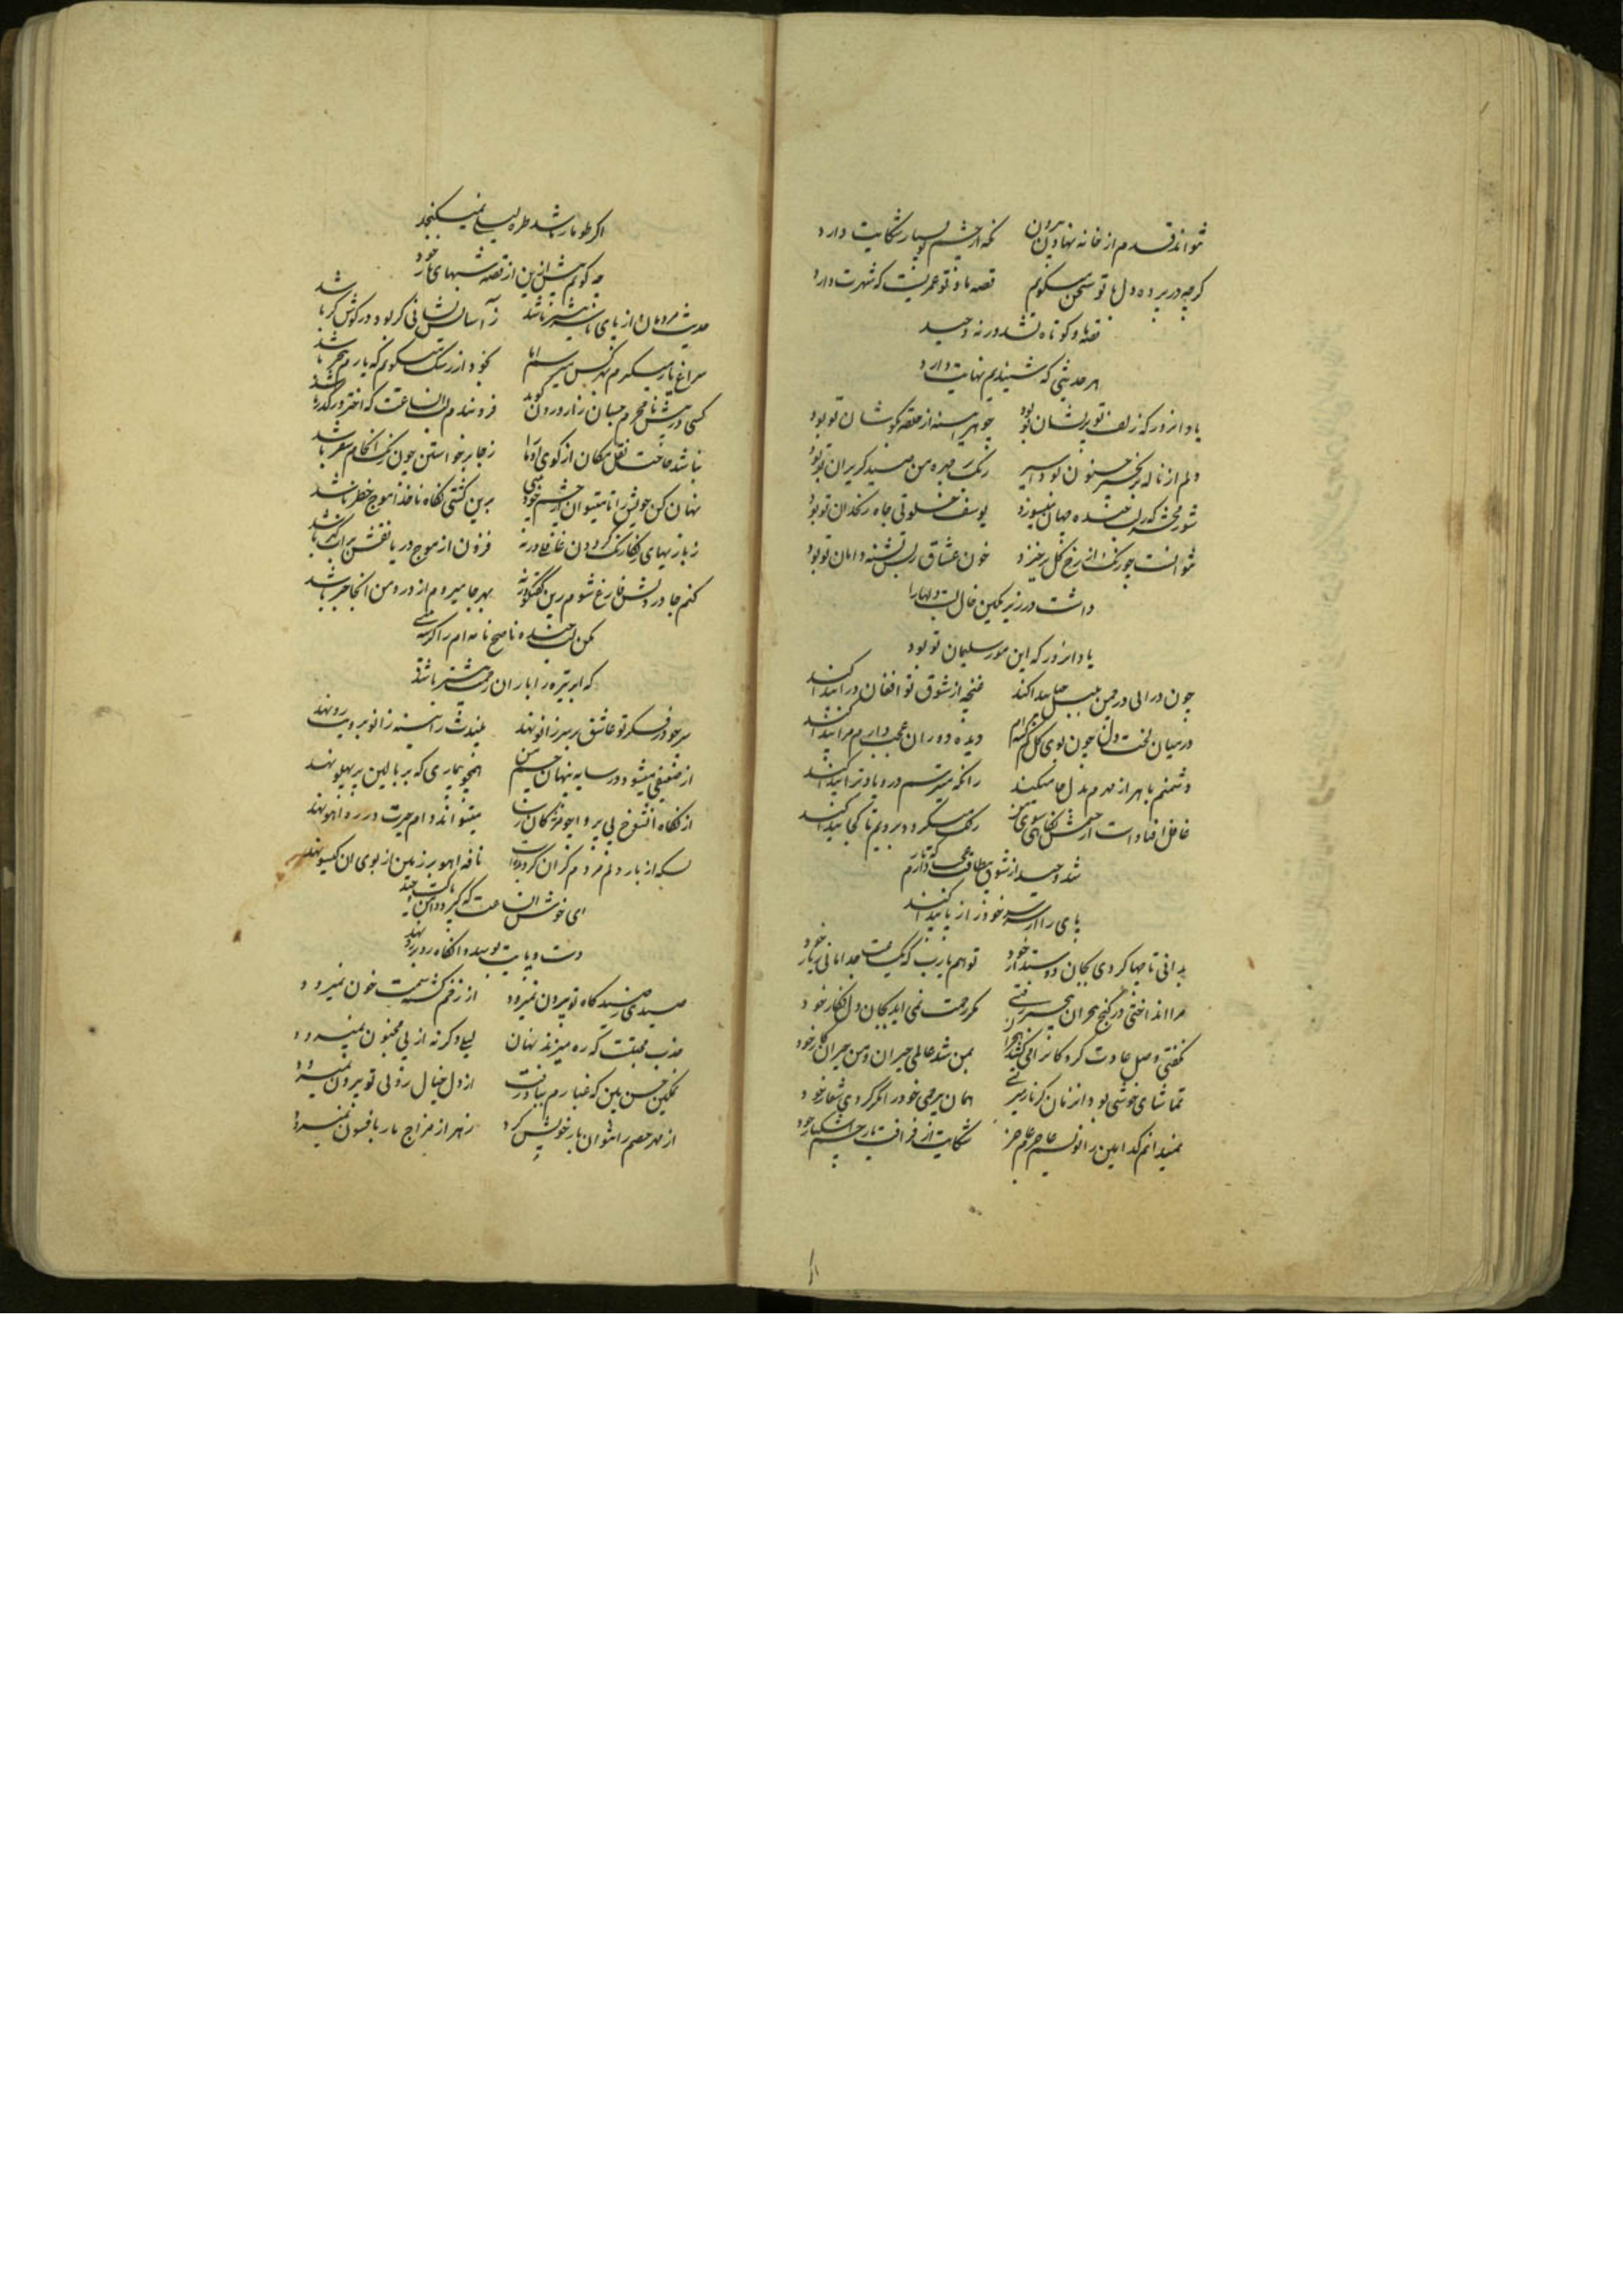 نتواند قدم از خانه نهادن بیرون نکه از چشم تو بسیار شکایت دارد
کرچه در پرده دل با تو سخن میکویم قصه ما و تو عمریست که شهرت دارد
قصه ما و کوتاه نشد ورنه وحید
هر حدیثی که شنیدیم نهایت دارد
یاد انروز که زلف تو پریشان تو بود جوهر از حلقه بکوشان تو بود
دلم از ناله زنجیر جنون بود اسیر رنک بر چهره من کریزان تو بود
شور محشر که لب خنده جهان میسوزد یوسف خلوتی چاه زنخدان تو بود
نتوانست چو رنک از رخ کل برخیزد خون عشاق تشنه دامان تو بود
داشت در زیر نکین خال لبت دلها را
یاد انروز که این مور سلیمان تو بود
چون درائی در چمن بلبل جا پیدا کند غنچه از شوق تو افغان درا پیدا کند
در میان لخت دل چون بوی کل کم کشته ام دیده دوران عجب دارم مرا پیدا کند
دشمنم با هر از مهرم بدل جا میکند زانکه میترسم در و یاد ترا پیدا کند
غافل افتاد است از چشمش نکاهی سوی من رنک میکردد برویم تا کجا پیدا کند
شد وحید از شوق بیطاقت دارم
پای را از سر خود را از پا پیدا کند
بدانی تا چها کردی بجان دوستدار خود تو هم یارب که یکساعت جدا مانی ز یار خود
مرا انداختی در کنج هجران رفتی مکر رحمت نمی اید بجان دل فکار خود
نکفتی وصل عادت کرد کانرا می کشد هجران بمن شد عالمی حیران و من حیران کار خود
تماشای خوشی بود انزمان کز ناز میرفتی همان بیرحمی خود را مکر کردی شعار خود
نمیدانم کدامین را نویسم عاجزم عاجز شکایت از فراقت یا ز چشم اشکبار خود
اکر طومار باشد طره لیلی نمیکنجد
چه کویم بیش ازین از قصه شبهای تار خود
حدیث مردمان از پای تا باشد ز آسایش نشانی کر بود در کوش کر باشد
سراغ یار میکیرم ز هر کس میرسم اما بخود از رشک میکویم که یارم بیخبر باشد
کسی در پیش نامحرم چسان راز درون کوید فرو بندم لب ان ساعت که اختر در کذر باشد
نباشد حاجت نقل مکان از کوی او ما را ز جا برخواستن چون رنک انکام سفر باشد
نهان کن خویش را تا میتوان از چشم خود بینی برین کشتی نکاه ناخدا موج خطر باشد
ز بازیهای رنکارنک کردون غافلی ورنه فزون از موج دریا نقش بر آب باشد
کنم جا در دلش فارغ شوم زین کفتکو ورنه بهر جا میروم از درد من انجا خبر باشد
مکن لب خنده ناصح نامه ام را کر سیه بینی
که ابر تیره را باران رحمت بیشتر باشد
سر چو در فکر تو عاشق بر سر زانو نهد بیندت در آینه زانو برویت رو نهد
از ضعیفی میشود در سایه پنهان جسم من همچو بیماری که بر بالین پر پهلو نهد
از نکاه انشوخ بی پروا چو مژکان میتواند دام حیرت در ره اهو نهد
بسکه از بار دلم مردم کران کردیده است نافه اهو بر زمین از بوی ان کیسو نهد
ای خوش ان ساعت که کیرد دامنت
دست و پایت بوسد و انکاه رو بر رو نهد
صیدی ز صیدکاه تو بیرون نمیرود از زخم کشته سمت خون نمیرود
جذب محبتست که ره میزند نهان لیلی وکرنه از پی مجنون نمیرود
تمکین حسن بین که غبارم بباد رفت از دل خیال روی تو بیرون نمیرود
از مهر خصم را نتوان یار خویش کرد زهر از مزاج مار بافسون نمیرود